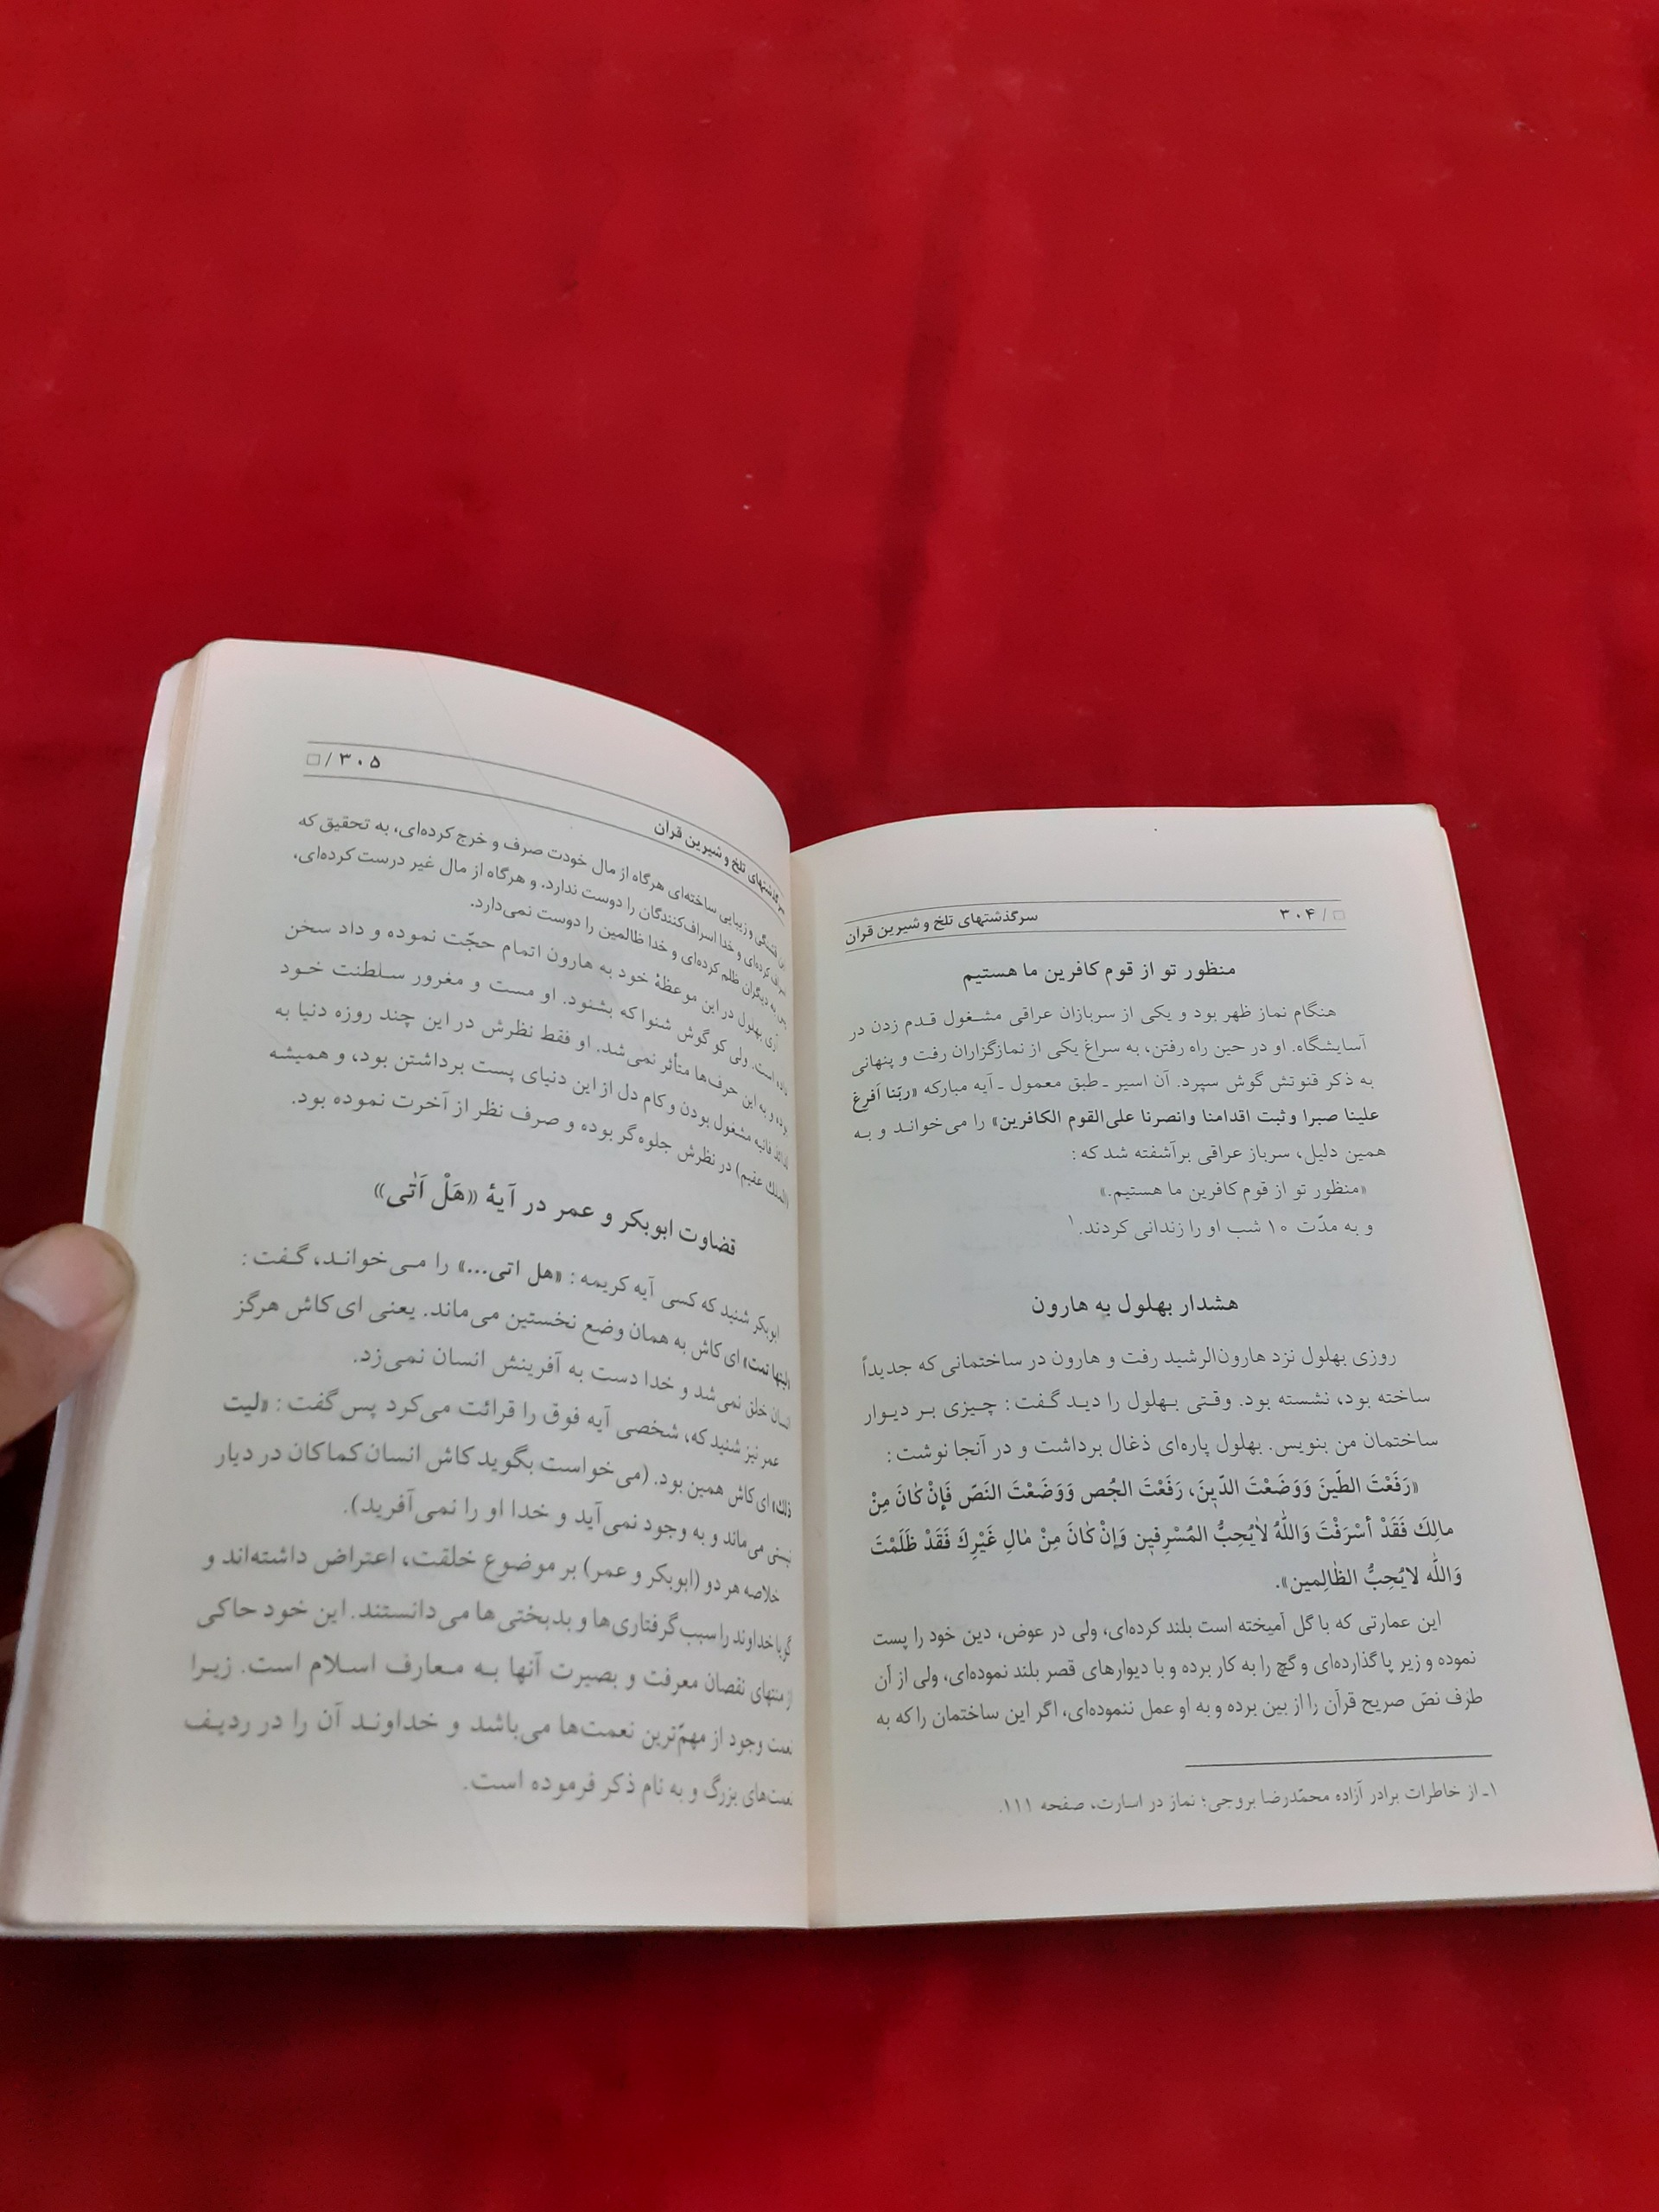 ۳۰۴ / □
سرگذشتهای تلخ و شیرین قرآن
منظور تو از قوم کافرین ما هستیم
هنگام نماز ظهر بود و یکی از سربازان عراقی مشغول قدم زدن در
آسایشگاه. او در حین راه رفتن، به سراغ یکی از نمازگزاران رفت و پنهانی
به ذکر قنوتش گوش سپرد. آن اسیر ـ طبق معمول ـ آیه مبارکه «ربّنا اَفرغ
علینا صبرا و ثبت اقدامنا وانصرنا علی‌القوم الکافرین» را می‌خواند و به
همین دلیل، سرباز عراقی برآشفته شد که :
«منظور تو از قوم کافرین ما هستیم.»
و به مدّت ۱۰ شب او را زندانی کردند.۱
هشدار بهلول به هارون
روزی بهلول نزد هارون‌الرشید رفت و هارون در ساختمانی که جدیداً
ساخته بود، نشسته بود. وقتی بهلول را دید گفت : چیزی بر دیوار
ساختمان من بنویس. بهلول پاره‌ای ذغال برداشت و در آنجا نوشت :
«رَفَعْتَ الطّینَ وَوَضَعْتَ الدّینَ، رَفَعْتَ الجُص وَوَضَعْتَ النَصّ فَإنْ کٰانَ مِنْ
مالِكَ فَقَدْ أسْرَفْتَ وَاللهُ لاٰیُحِبُّ المُسْرِفین وَإنْ کٰانَ مِنْ مٰالِ غَیْرِكَ فَقَدْ ظَلَمْتَ
وَاللهُ لایُحِبُّ الظٰالِمین».
این عمارتی که با گل آمیخته است بلند کرده‌ای، ولی در عوض، دین خود را پست
نموده و زیر پا گذارده‌ای و گچ را به کار برده و با دیوارهای قصر بلند نموده‌ای، ولی از آن
طرف نصّ صریح قرآن را از بین برده و به او عمل ننموده‌ای، اگر این ساختمان را که به
۱ـ از خاطرات برادر آزاده محمّدرضا بروجی؛ نماز در اسارت، صفحه ۱۱۱.
سرگذشتهای تلخ و شیرین قرآن
۳۰۵ / □
این قشنگی و زیبایی ساخته‌ای هرگاه از مال خودت صرف و خرج کرده‌ای، به تحقیق که
کرده‌ای و خدا اسراف‌کنندگان را دوست ندارد. و هرگاه از مال غیر درست کرده‌ای،
به دیگران ظلم کرده‌ای و خدا ظالمین را دوست نمی‌دارد.
آری بهلول در این موعظهٔ خود به هارون اتمام حجّت نموده و داد سخن
داده است. ولی کو گوش شنوا که بشنود. او مست و مغرور سلطنت خود
بوده و به این حرف‌ها متأثر نمی‌شد. او فقط نظرش در این چند روزه دنیا به
فانیه مشغول بودن و کام دل از این دنیای پست برداشتن بود، و همیشه
(الملك عقیم) در نظرش جلوه‌گر بوده و صرف نظر از آخرت نموده بود.
قضاوت ابوبکر و عمر در آیهٔ «هَلْ اَتٰی»
ابوبکر شنید که کسی آیه کریمه : «هل اتی...» را می‌خواند، گفت :
«لیتها تمت» ای کاش به همان وضع نخستین می‌ماند. یعنی ای کاش هرگز
انسان خلق نمی‌شد و خدا دست به آفرینش انسان نمی‌زد.
عمر نیز شنید که، شخصی آیه فوق را قرائت می‌کرد پس گفت : «لیت
ذلك» ای کاش همین بود. (می‌خواست بگوید کاش انسان کماکان در دیار
نیستی می‌ماند و به وجود نمی‌آید و خدا او را نمی‌آفرید).
خلاصه هر دو (ابوبکر و عمر) بر موضوع خلقت، اعتراض داشته‌اند و
گویا خداوند را سبب گرفتاری‌ها و بدبختی‌ها می‌دانستند. این خود حاکی
از منتهای نقصان معرفت و بصیرت آنها به معارف اسلام است. زیرا
نعمت وجود از مهمّ‌ترین نعمت‌ها می‌باشد و خداوند آن را در ردیف
نعمت‌های بزرگ و به نام ذکر فرموده است.